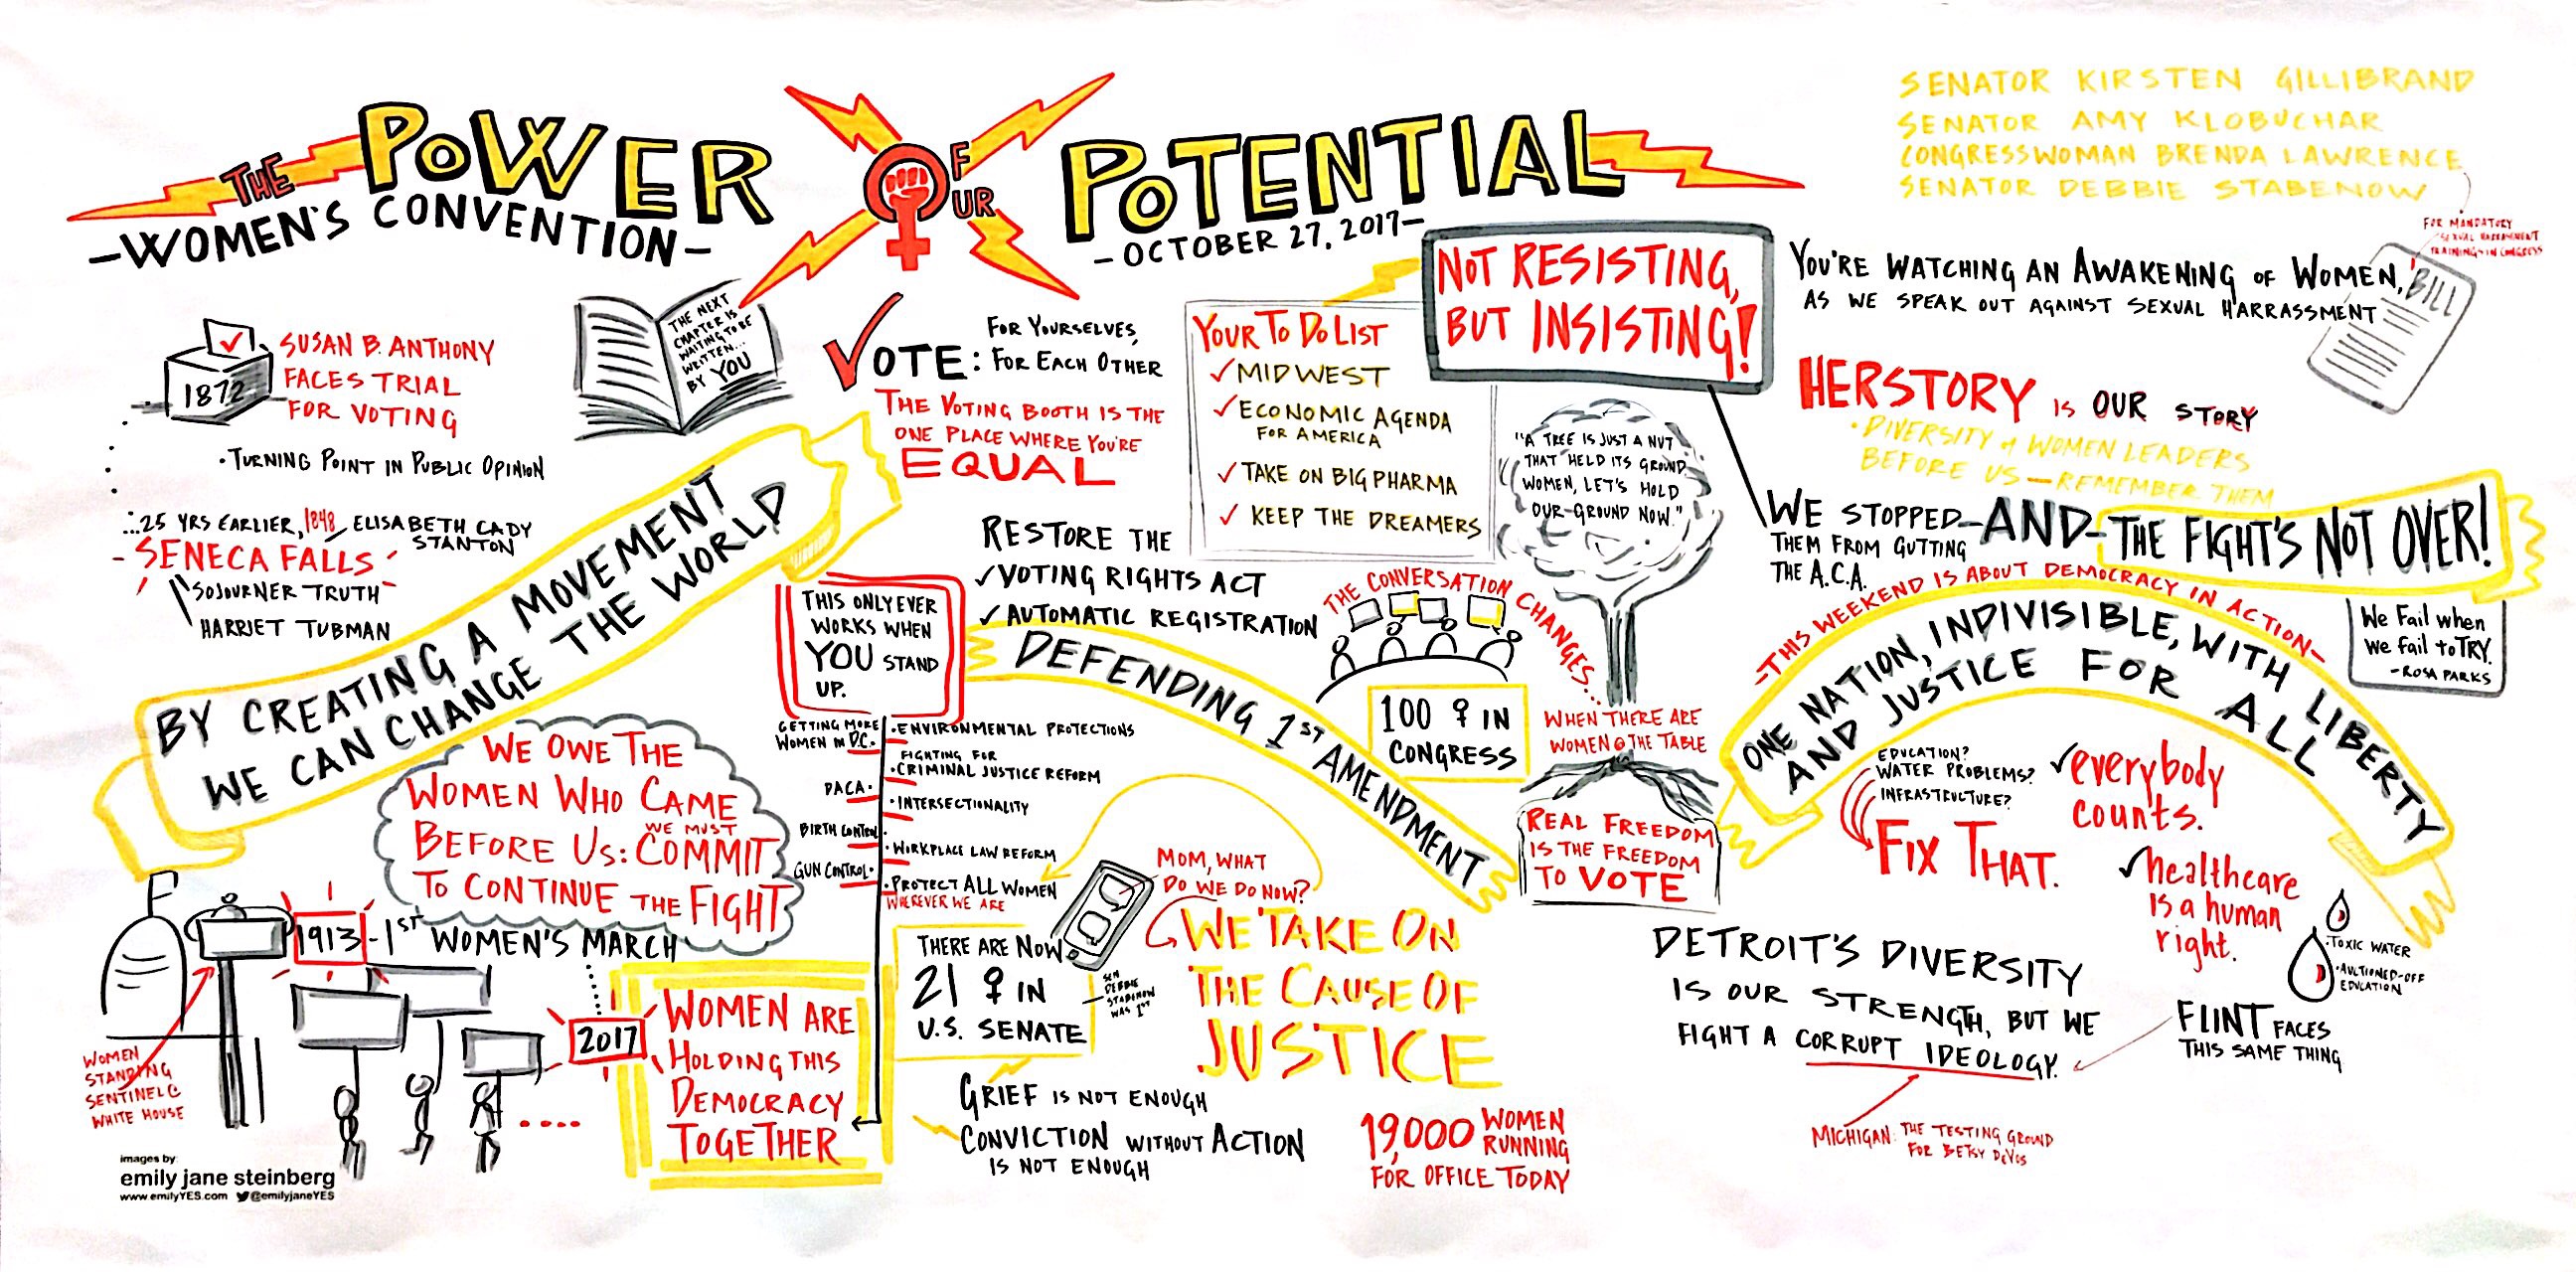 THE POWER OF OUR POTENTIAL
-WOMEN'S CONVENTION-
-OCTOBER 27, 2017-
SENATOR KIRSTEN GILLIBRAND
SENATOR AMY KLOBUCHAR
CONGRESSWOMAN BRENDA LAWRENCE
SENATOR DEBBIE STABENOW
FOR MANDATORY
SEXUAL HARRASSMENT
TRAINING IN CONGRESS
BILL
1872
SUSAN B. ANTHONY
FACES TRIAL
FOR VOTING
• TURNING POINT IN PUBLIC OPINION
...25 YRS EARLIER, 1848, ELISABETH CADY
STANTON
- SENECA FALLS -
SOJOURNER TRUTH
HARRIET TUBMAN
THE NEXT
CHAPTER IS
WAITING TO BE
WRITTEN...
BY YOU
BY CREATING A MOVEMENT
WE CAN CHANGE THE WORLD
VOTE:
FOR YOURSELVES,
FOR EACH OTHER
THE VOTING BOOTH IS THE
ONE PLACE WHERE YOU'RE
EQUAL
YOUR TO DO LIST
✓ MIDWEST
✓ ECONOMIC AGENDA
FOR AMERICA
✓ TAKE ON BIG PHARMA
✓ KEEP THE DREAMERS
NOT RESISTING,
BUT INSISTING!
YOU'RE WATCHING AN AWAKENING OF WOMEN,
AS WE SPEAK OUT AGAINST SEXUAL HARRASSMENT
HERSTORY IS OUR STORY
• DIVERSITY of WOMEN LEADERS
BEFORE US - REMEMBER THEM
"A TREE IS JUST A NUT
THAT HELD ITS GROUND.
WOMEN, LET'S HOLD
OUR GROUND NOW."
WE STOPPED
THEM FROM GUTTING
THE A.C.A.
-AND-
THE FIGHT'S NOT OVER!
RESTORE THE
✓ VOTING RIGHTS ACT
✓ AUTOMATIC REGISTRATION
THE CONVERSATION CHANGES...
WHEN THERE ARE
WOMEN @ THE TABLE
100 ♀ IN
CONGRESS
DEFENDING 1ST AMENDMENT
REAL FREEDOM
IS THE FREEDOM
TO VOTE
-THIS WEEKEND IS ABOUT DEMOCRACY IN ACTION-
ONE NATION, INDIVISIBLE, WITH LIBERTY
AND JUSTICE FOR ALL
We Fail when
We fail to TRY.
-ROSA PARKS
THIS ONLY EVER
WORKS WHEN
YOU STAND
UP.
GETTING MORE
WOMEN IN D.C.
DACA
BIRTH CONTROL
GUN CONTROL
• ENVIRONMENTAL PROTECTIONS
FIGHTING FOR
• CRIMINAL JUSTICE REFORM
• INTERSECTIONALITY
• WORKPLACE LAW REFORM
• PROTECT ALL WOMEN
WHEREVER WE ARE
WE OWE THE
WOMEN WHO CAME
BEFORE US: WE MUST COMMIT
TO CONTINUE THE FIGHT
1913 - 1ST WOMEN'S MARCH
2017
WOMEN
STANDING
SENTINEL @
WHITE HOUSE
WOMEN ARE
HOLDING THIS
DEMOCRACY
TOGETHER
THERE ARE NOW
21 ♀ IN
U.S. SENATE
SEN
DEBBIE
STABENOW
WAS 1ST
MOM, WHAT
DO WE DO NOW?
WE TAKE ON
THE CAUSE OF
JUSTICE
GRIEF IS NOT ENOUGH
CONVICTION WITHOUT ACTION
IS NOT ENOUGH
19,000 WOMEN
RUNNING
FOR OFFICE TODAY
EDUCATION?
WATER PROBLEMS?
INFRASTRUCTURE?
FIX THAT.
✓ everybody
counts.
✓ healthcare
is a human
right.
• TOXIC WATER
• AUCTIONED-OFF
EDUCATION
DETROIT'S DIVERSITY
IS OUR STRENGTH, BUT WE
FIGHT A CORRUPT IDEOLOGY.
FLINT FACES
THIS SAME THING
MICHIGAN: THE TESTING GROUND
FOR BETSY DEVOS
images by:
emily jane steinberg
www.emilyYES.com @emilyjaneYES